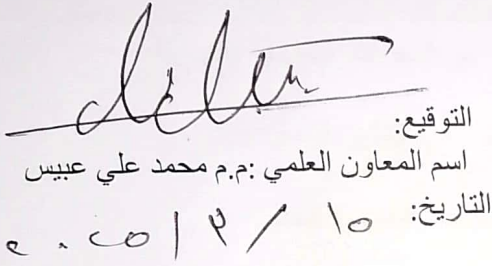 التوقيع:
اسم المعاون العلمي :م.م محمد علي عبيس
التاريخ: ١٥ / ٣ / ٢٠٢٥